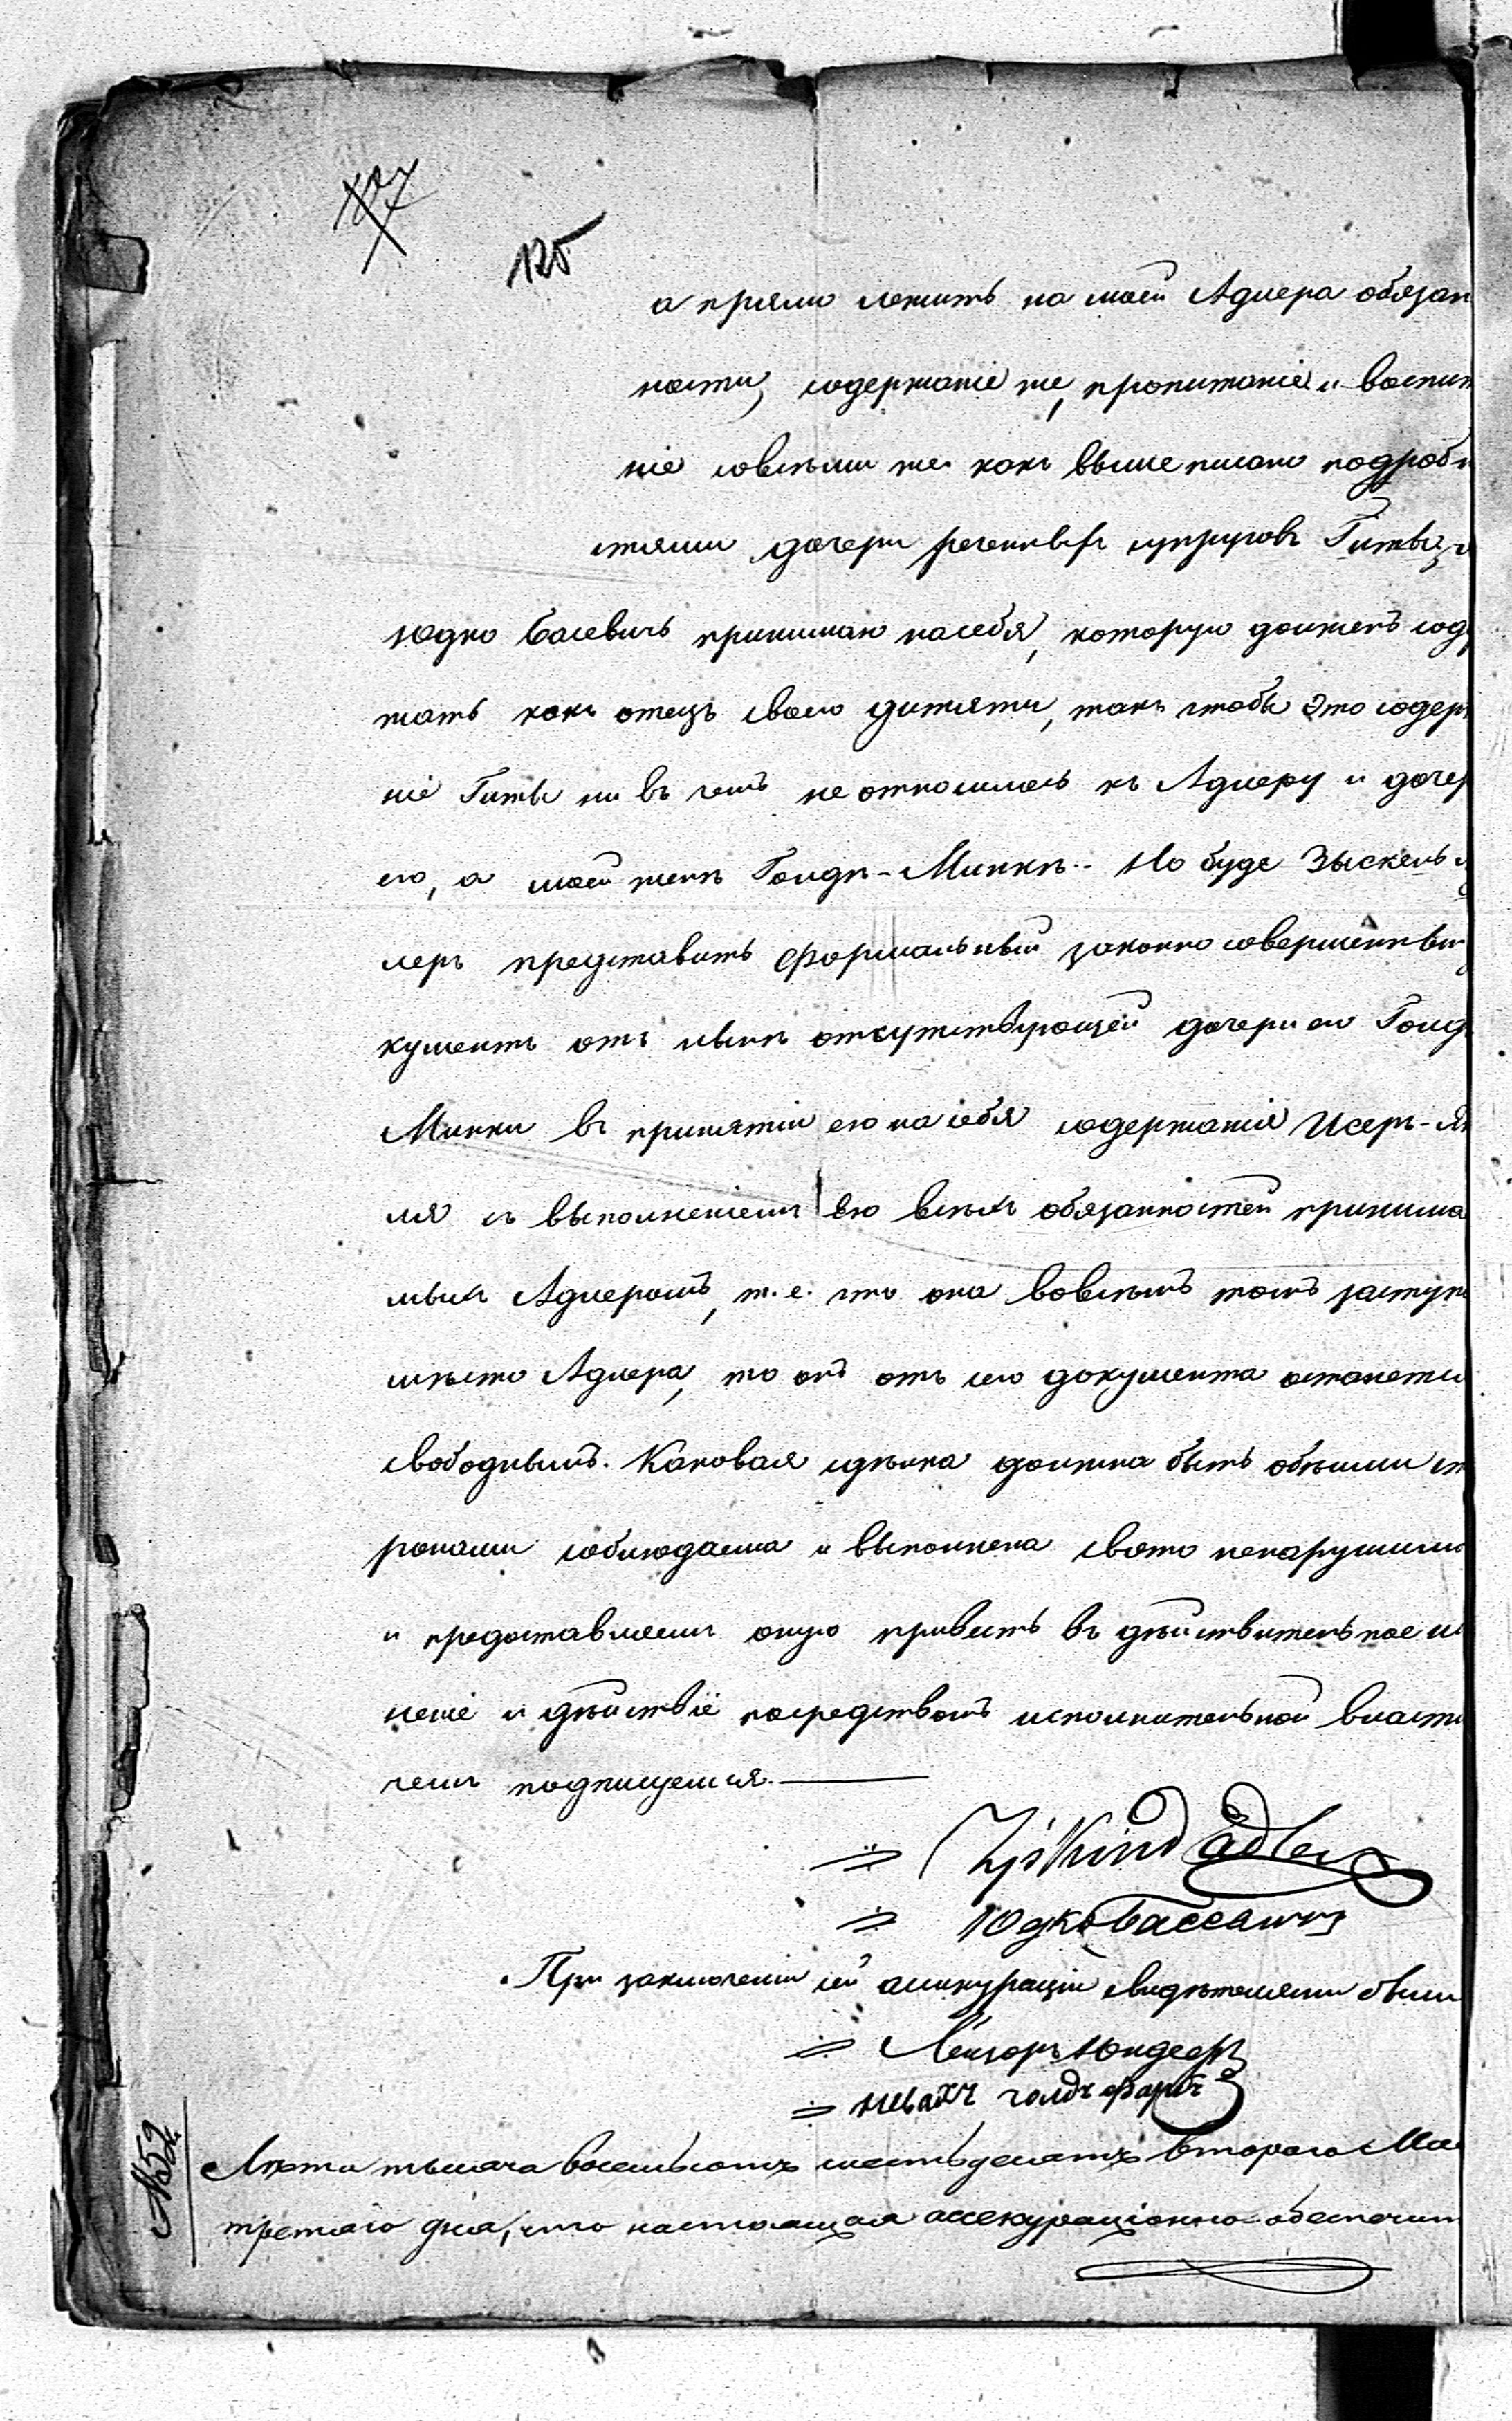 127
125
а прямо лежитъ на моей Адлера обязан
ности, содержаніе же, пропитаніе и воспит
ніе совсѣми же какъ выше писано подробн
стями дочери реченныхъ супруговъ Гитвы, я
Юдко Басевичъ принимаю на себя, которую долженъ сод
жать какъ отецъ своего дитяти, такъ чтобы это содер
ніе Гитвы ни въ чемъ не относилось къ Адлеру и дочер
его, а моей женѣ Голдѣ-Минкѣ. Но буде Зыскель
леръ представитъ формальный законно совершенный
кументъ отъ нынѣ отсутствующей дочери его Голд
Минки въ принятіи ею на себя содержанія Исеръ-Ян
ля съ выполненіемъ ею всѣхъ обязанностей принима
мыхъ Адлеромъ, т. е. что она вовсѣмъ томъ заступ
мѣсто Адлера, то онъ отъ сего документа останется
свободнымъ. Каковая сдѣлка должна быть обѣими ст
ронами соблюдаема и выполнена свято ненарушимо
и предоставляемъ оную привесть въ дѣйствительное и
неніе и дѣйствіе посредствомъ исполнительной власти
чемъ подписуемся.
Zyskind Adler
Юдко Бассевичъ
При заключеніи сей ассикураціи свидѣтелями были
Лейзоръ Юндеръ
Невахъ Голдъфарбъ
№52
Лѣта тысяча восемьсотъ шестьдесятъ втораго Ма
третьяго дня, что настоящая ассекураціонно-обеспечит